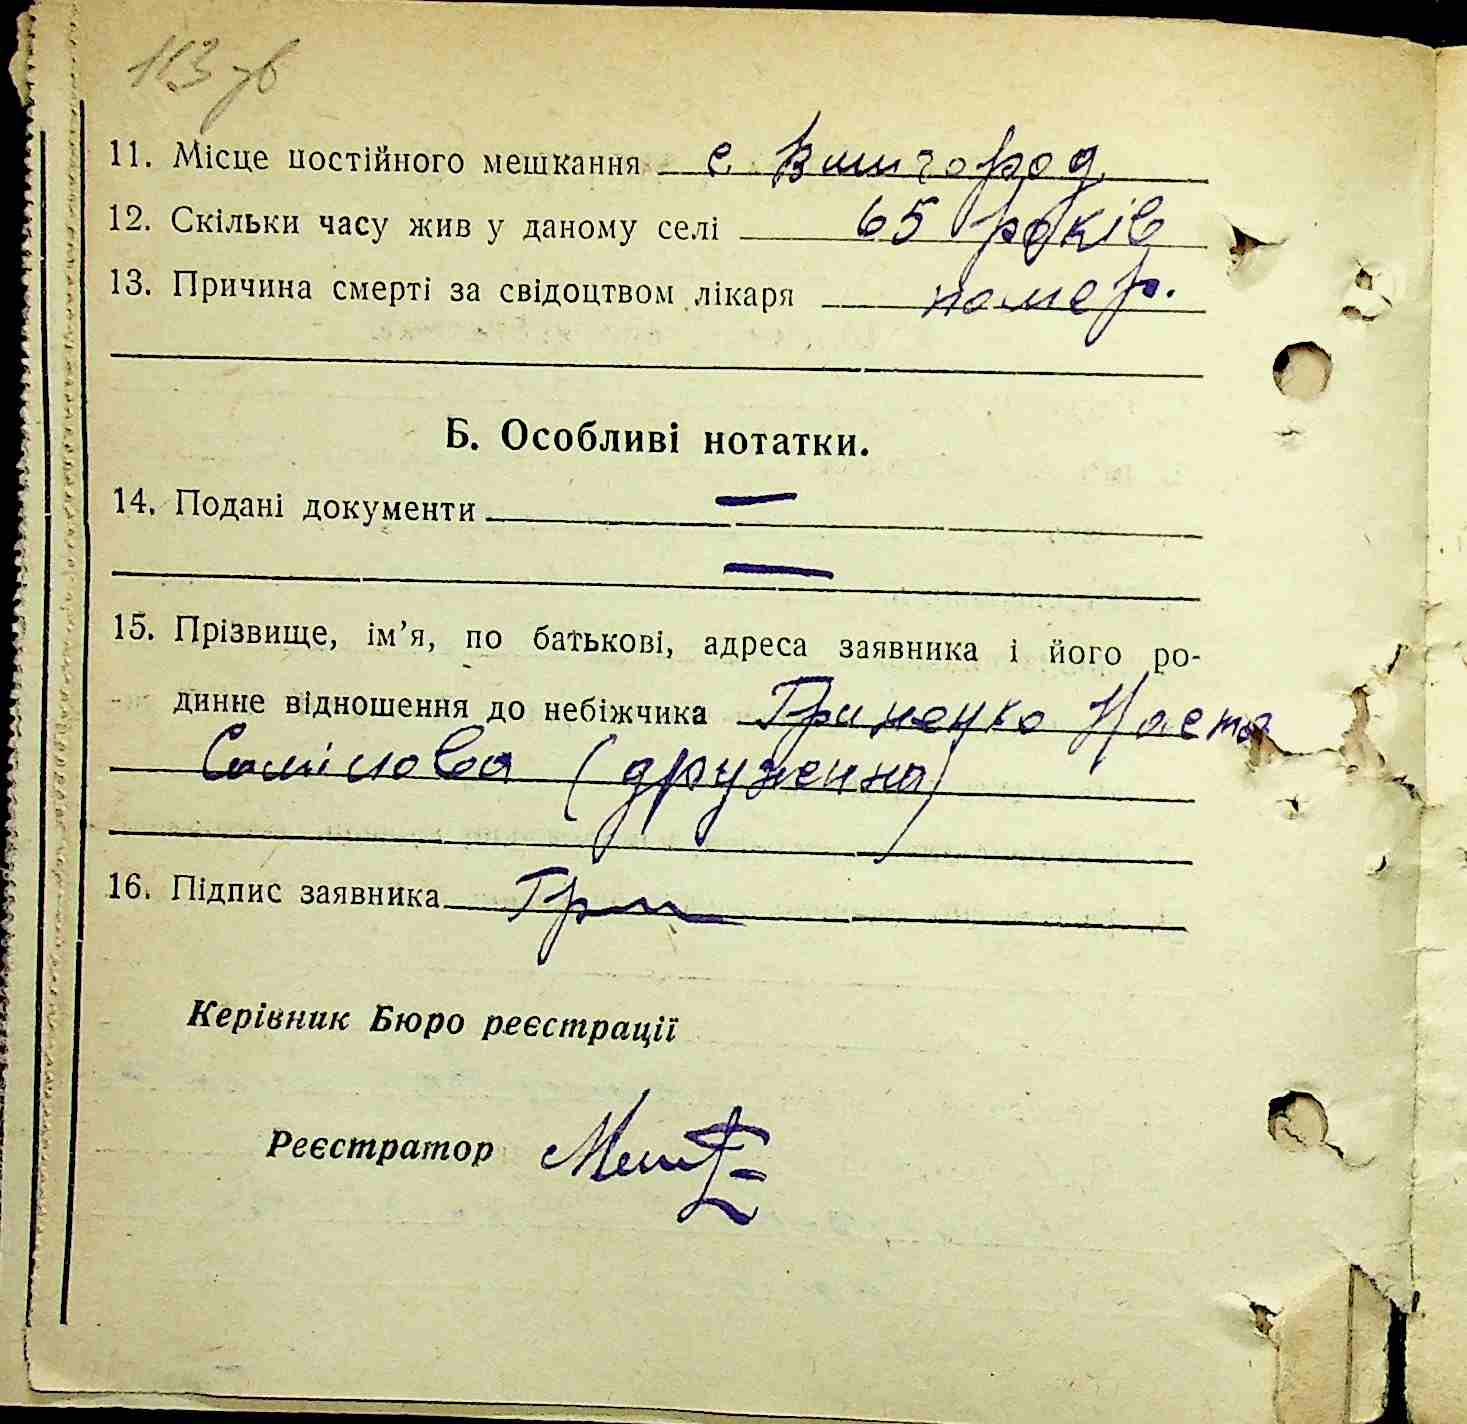 113 зв
11. Місце постійного мешкання с. Вишгород
12. Скільки часу жив у даному селі 65 років
13. Причина смерті за свідоцтвом лікаря помер.
Б. Особливі нотатки.
14. Подані документи —
—
15. Прізвище, ім’я, по батькові, адреса заявника і його ро-
динне відношення до небіжчика Гриненко Настя
(дружина)
16. Підпис заявника Грин
Керівник Бюро реєстрації
Реєстратор